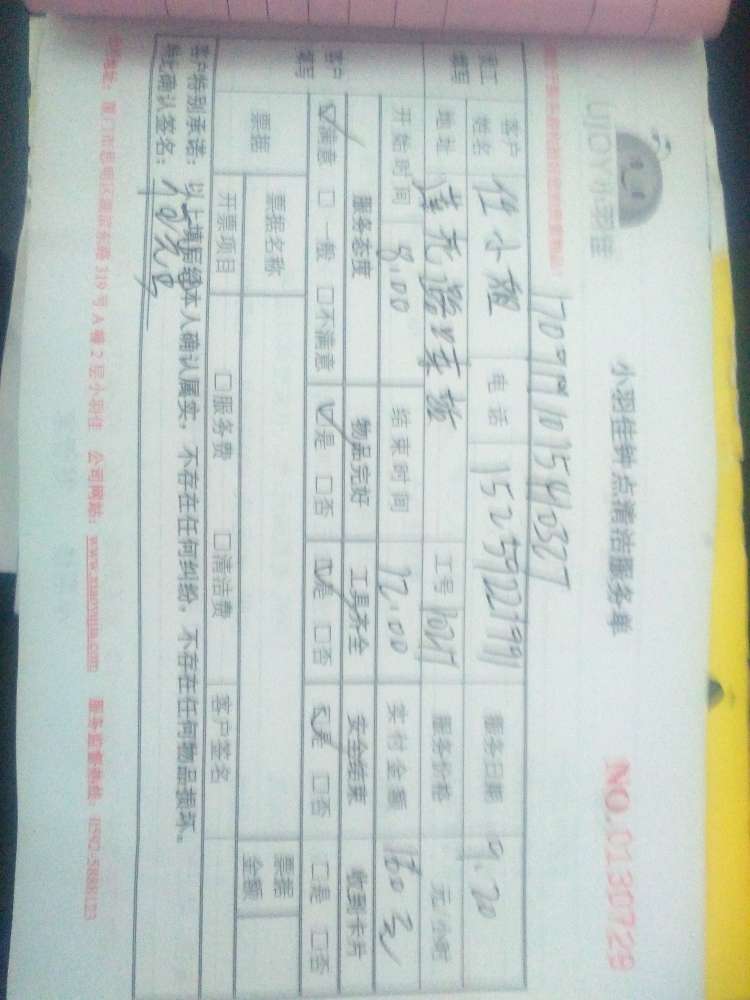 UJOY小羽佳
小羽佳钟点清洁服务单
NO.0130729
客户姓名 任小姐 电话 服务日期 9.20
地址 莲花 工号 服务价格 元/小时
开始时间 8:00 结束时间 12:00 实付金额
员工填写
客户填写
服务态度 物品完好 工具齐全 安全结束 收到卡片
☑满意 □一般 □不满意 ☑是 □否 ☑是 □否 ☑是 □否 □是 □否
票据 票据名称 票据金额
开票项目 □服务费 □清洁费 客户签名
客户特别承诺:以上填层经本人确认属实,不存在任何纠纷,不存在任何物品损坏。
特此确认签名:
319号A幢2层小羽佳 公司网站:www.xiaoyujia.com 服务监督热线:0592-5888123